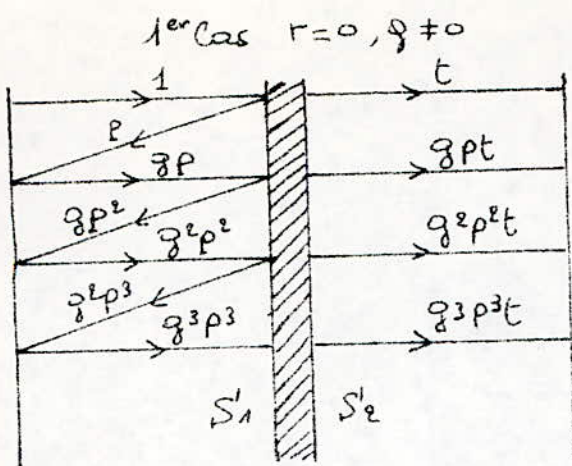 1er Cas r=0, g≠0
1 t
p
gp gpt
gp²
g²p² g²p²t
g²p³
g³p³ g³p³t
S'1 S'2